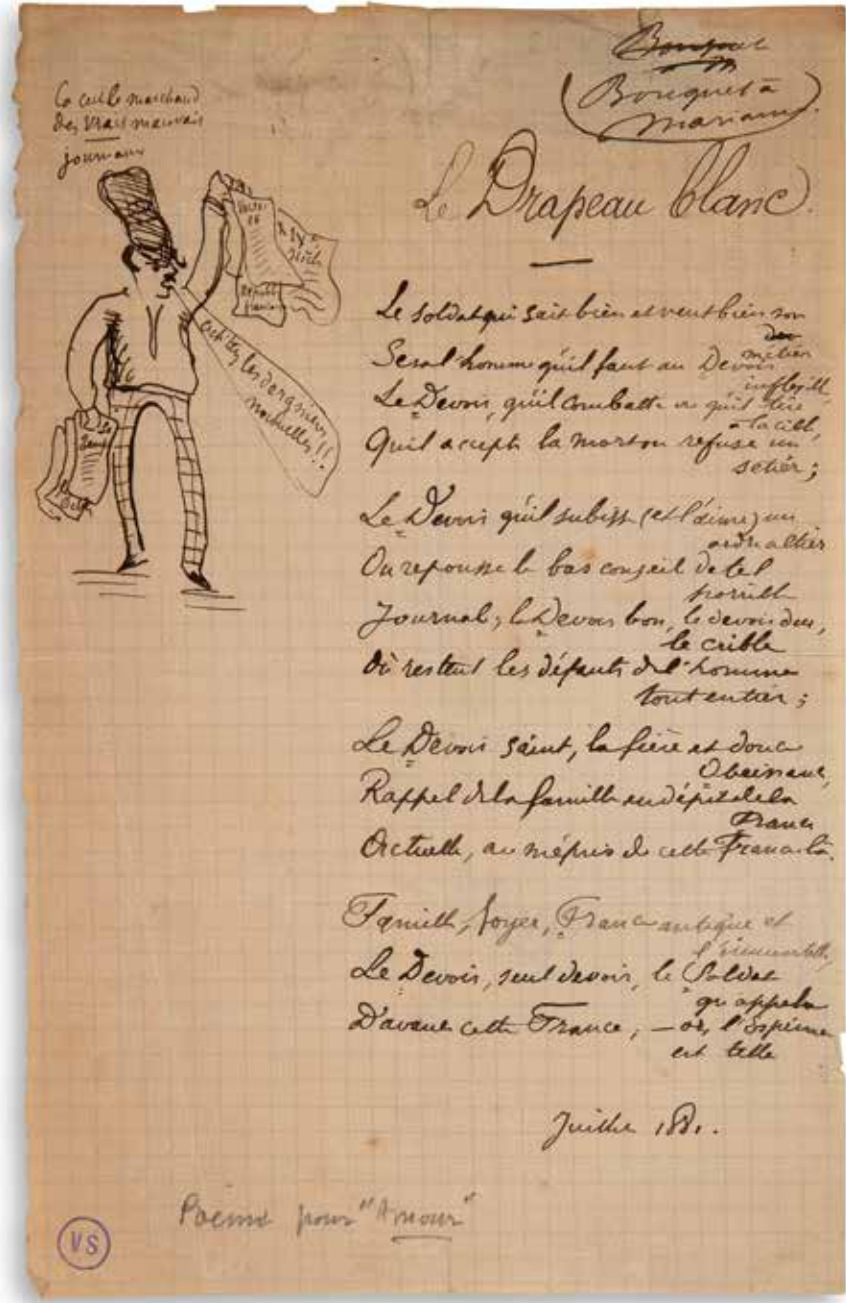 Ça c'est le marchand
des vrais mauvais
journaux
Bouquet
(Bouquet à
Marianne)
Le Drapeau blanc.
Le soldat qui sait bien et veut bien son
métier
Sera l'homme qu'il faut au Devoir
inflexible
Le Devoir, qu'il combatte ou qu'il tire
à la cible,
Qu'il accepte la mort ou refuse un
setier;
Le Devoir qu'il subisse (et l'aime) un
ordre altier
Ou repousse le bas conseil de tel
horrible
Journal; le Devoir bon, le devoir dur,
le crible
Où restent les défauts de l'homme
tout entier;
Le Devoir saint, la fière et douce
Obéissance,
Rappel de la famille en dépit de la
France
Actuelle, au mépris de cette France-là.
Famille, foyer, France antique et
l'immortelle,
Le Devoir, seul devoir, le Soldat
qu'appela
D'avance cette France; — or, l'Espérance
est telle
Juillet 1881.
Poème pour "Amour"
VS